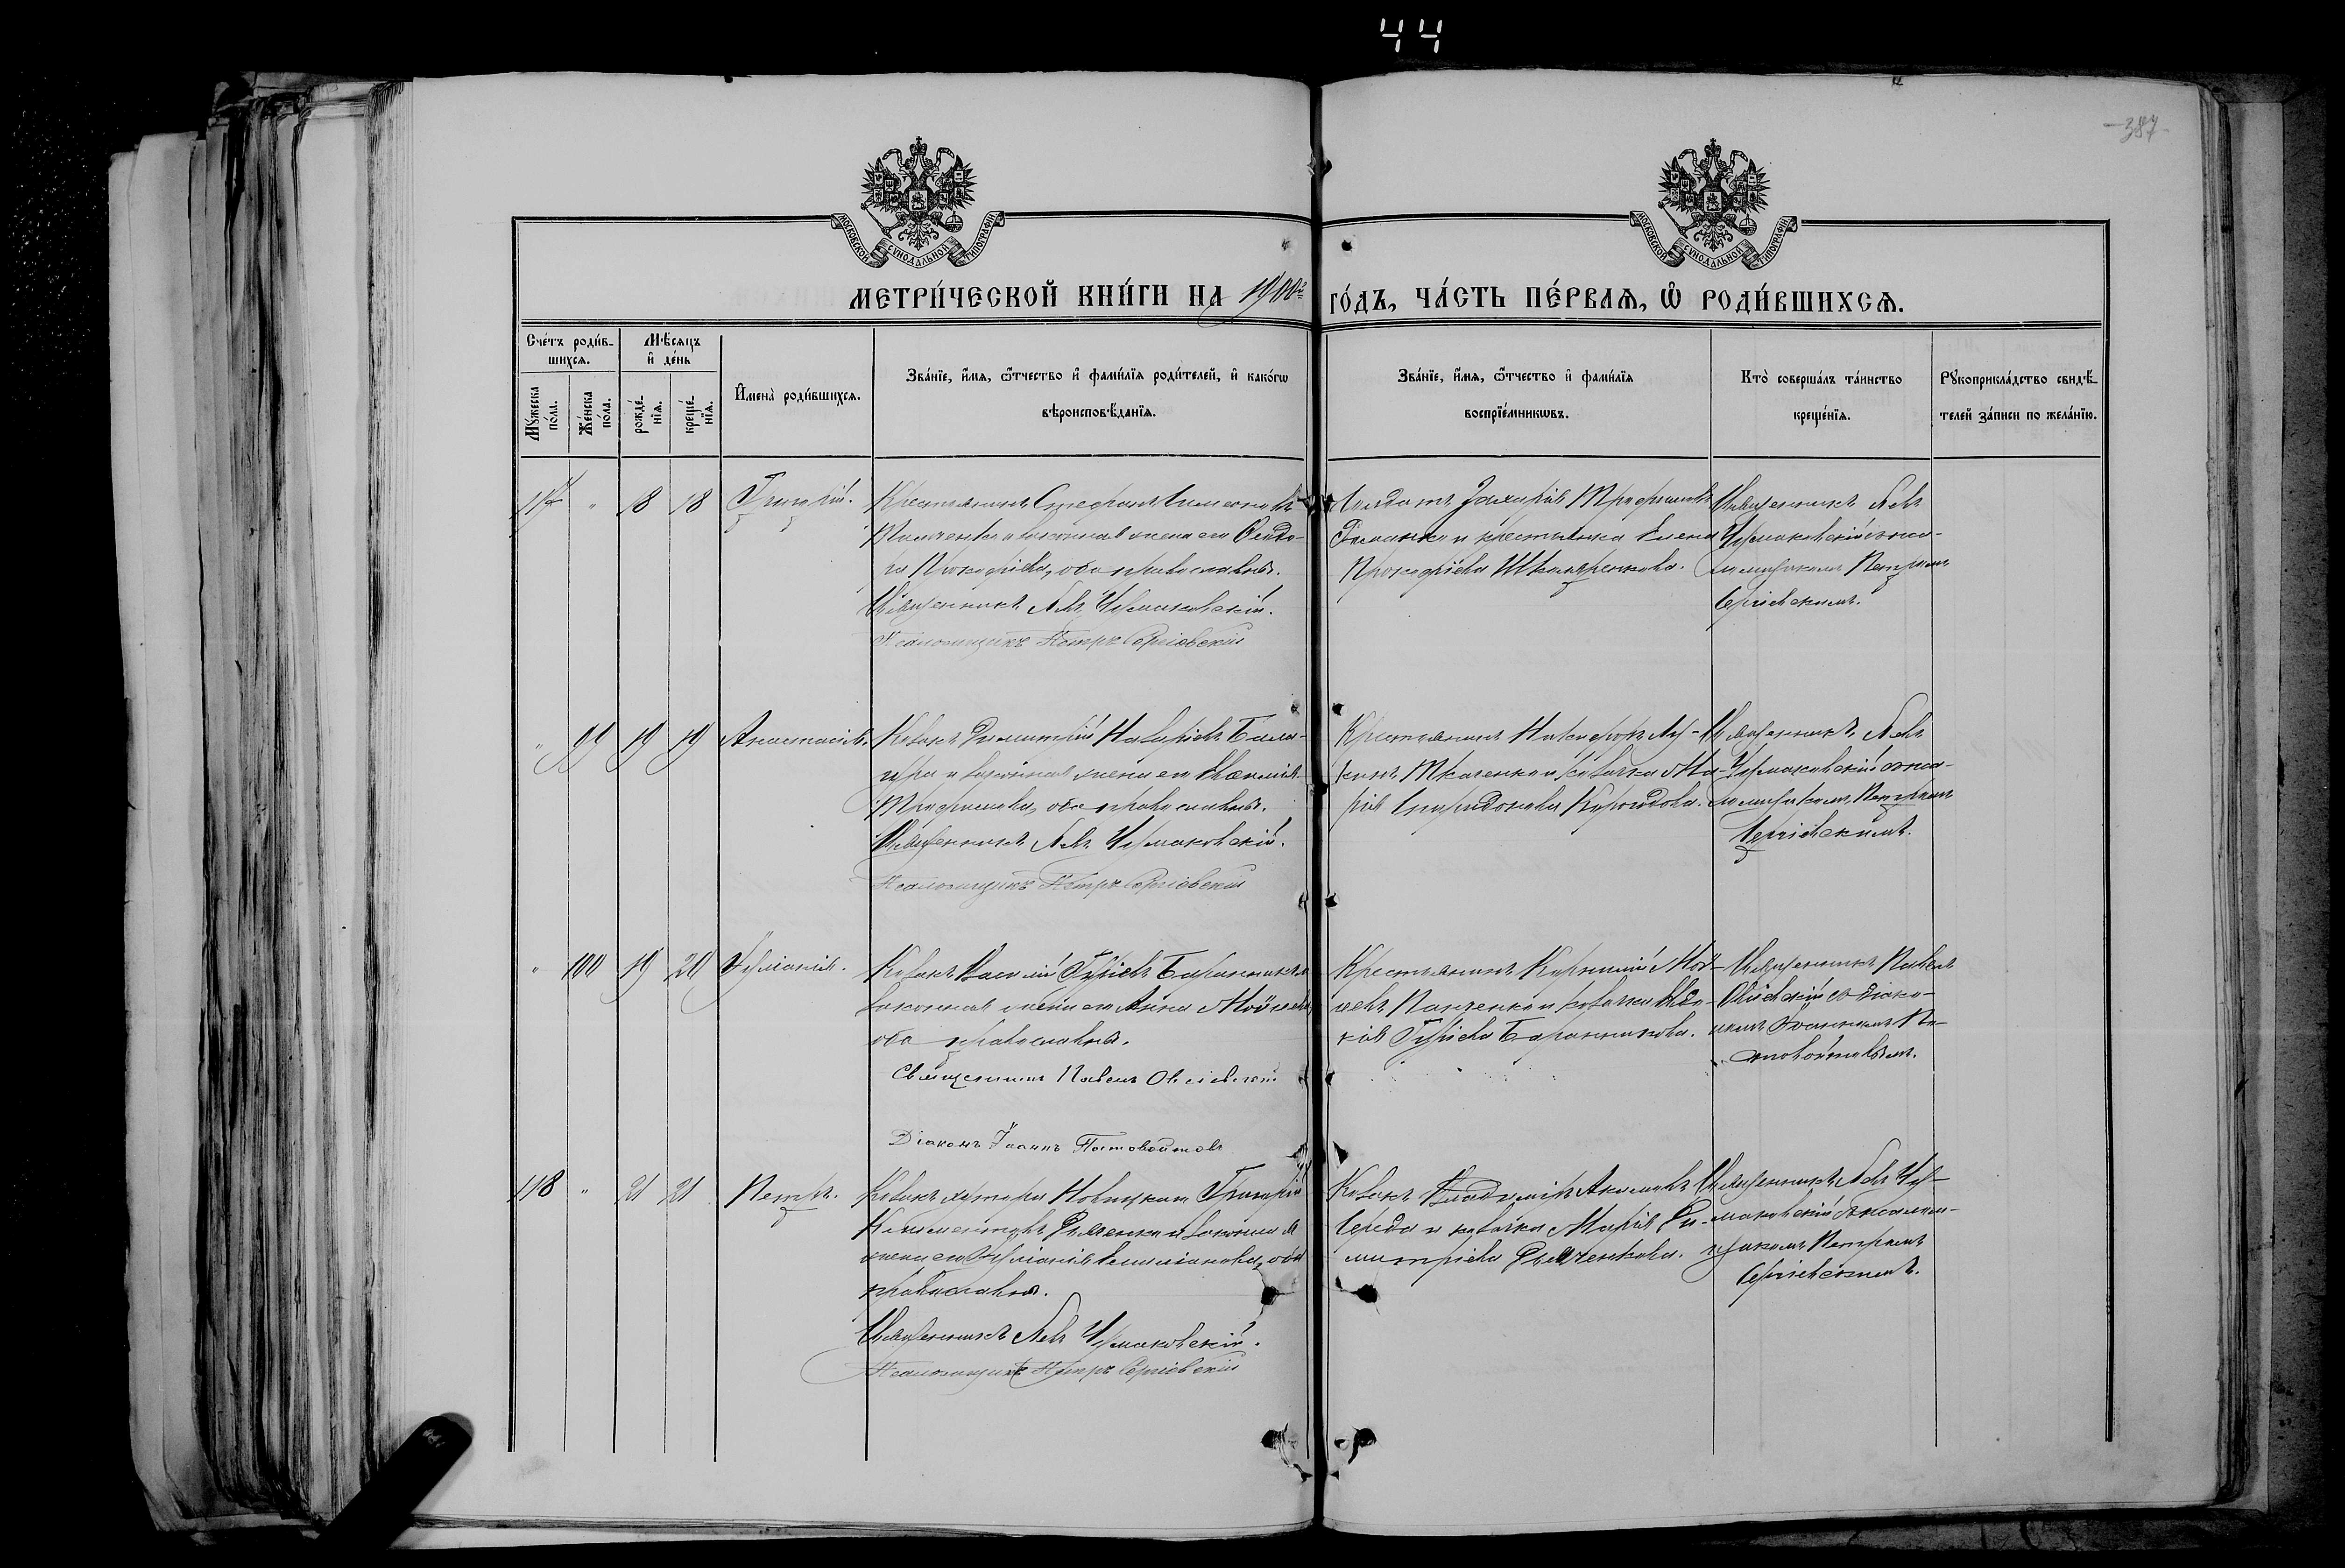 44
387
МОСКОВСКОЙ СѴНОДАЛЬНОЙ ТИПОГРАФІИ
МОСКОВСКОЙ СѴНОДАЛЬНОЙ ТИПОГРАФІИ
МЕТРИ́ЧЕСКОЙ КНИ́ГИ НА 1900й
ГО́ДЪ, ЧА́СТЬ ПЕ́РВАѦ, Ѡ РОДИ́ВШИХСѦ.
Счетъ роди́в-
шихсѧ.
Мѣсѧцъ
и́ де́нь
Мꙋжеска по́ла.
Же́нска по́ла.
рожде́-
нїѧ.
креще́-
нїѧ.
И҆мена̀ роди́вшихсѧ.
Зва́нїе, и҆мѧ, ѻ҆́тчество и҆ фами́лїѧ роди́телей, и҆ како́гѡ
вѣроисповѣ́данїѧ.
Зва́нїе, и҆мѧ, ѻ҆́тчество и҆ фами́лїѧ
воспрїе́мникѡвъ.
Кто̀ соверша́лъ та́инство
креще́нїѧ.
Рꙋкоприкла́дство свидѣ́-
телей за́писи по жела́нїю.
117 " 18 18 Григорій.
Крестьянинъ Стефанъ Симеоновъ
Ткаченко и законная жена его Феодо-
ра Прокофіева, оба православные.
Священникъ Левъ Чермаковскій.
Псаломщикъ Петръ Сергіевскій
Солдатъ Захарій Трофимовъ
и крестьянка Елена
Прокофіева Шкондренкова.
Священникъ Левъ
Чермаковскій съ пса-
ломщикомъ Петромъ
Сергіевскимъ.
" 99 19 19 Анастасія.
Козакъ Димитрій Назаріевъ Бала-
цера и законная жена его Евфимія
Трофимова, оба православные.
Священникъ Левъ Чермаковскій.
Псаломщикъ Петръ Сергіевскій
Крестьянинъ Никифоръ Лу-
кинъ Ткаченко и козачка Ма-
рія Спиридонова
Священникъ Левъ
Чермаковскій съ пса-
ломщикомъ Петромъ
Сергіевскимъ.
" 100 19 20 Іуліанія.
Козакъ Василій Гуріевъ Баранникъ и
законная жена его Анна Мойсеева
оба православные.
Священникъ Павелъ Овсіевскій
Діаконъ Іоаннъ Постовойтовъ
Крестьянинъ Корнилій Мой-
сеевъ Панченко и козачка Евдо-
кія Гуріева Баранникова.
Священникъ Павелъ
Овсіевскій съ діако-
номъ Іоанномъ По-
стовойтовымъ.
118 " 21 21 Петръ.
Козакъ хутора Новицкаго Григорій
Климентовъ Дяченко и законная
жена его Іуліанія Емиліанова, оба
православные.
Священникъ Левъ Чермаковскій.
Псаломщикъ Петръ Сергіевскій
Козакъ Владиміръ Акимовъ
Середа и козачка Марія Ди-
митріева Дяченкова.
Священникъ Левъ Чер-
маковскій съ псалом-
щикомъ Петромъ
Сергіевскимъ.